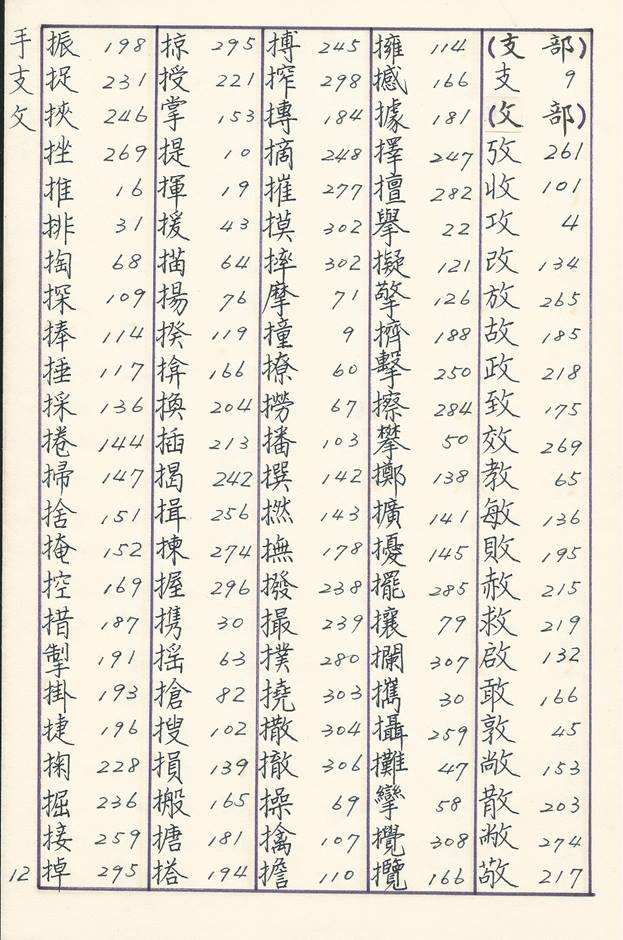 手支攵
振 198
捉 231
挾 246
挫 269
推 16
排 31
掏 68
探 109
捧 114
捶 117
採 136
捲 144
掃 147
捨 151
掩 152
控 169
措 187
掣 191
掛 193
捷 196
掬 228
掘 236
接 259
掉 295
掠 295
授 221
掌 153
提 10
揮 19
援 43
描 64
揚 76
揆 119
揜 166
換 204
插 213
揭 242
揖 256
揀 274
握 296
携 30
搖 63
搶 82
搜 102
損 139
搬 165
搪 181
搭 194
搏 245
搾 298
摶 184
摘 248
摧 277
摸 302
摔 302
摩 71
撞 9
撩 60
撈 67
播 103
撰 142
撚 143
撫 178
撥 238
撮 239
撲 280
撓 303
撒 304
撤 306
操 69
擒 107
擔 110
擁 114
撼 166
據 181
擇 247
擅 282
擧 22
擬 121
擎 126
擠 188
擊 250
擦 284
攀 50
擲 138
擴 141
擾 145
擺 285
攘 79
攔 307
攜 30
攝 259
攤 47
攣 58
攪 308
攬 166
(支 部)
支 9
(攵 部)
攷 261
收 101
攻 4
改 134
放 265
故 185
政 218
致 175
效 269
教 65
敏 136
敗 195
赦 215
救 219
啟 132
敢 166
敦 45
敞 153
散 203
敝 274
敬 217
12